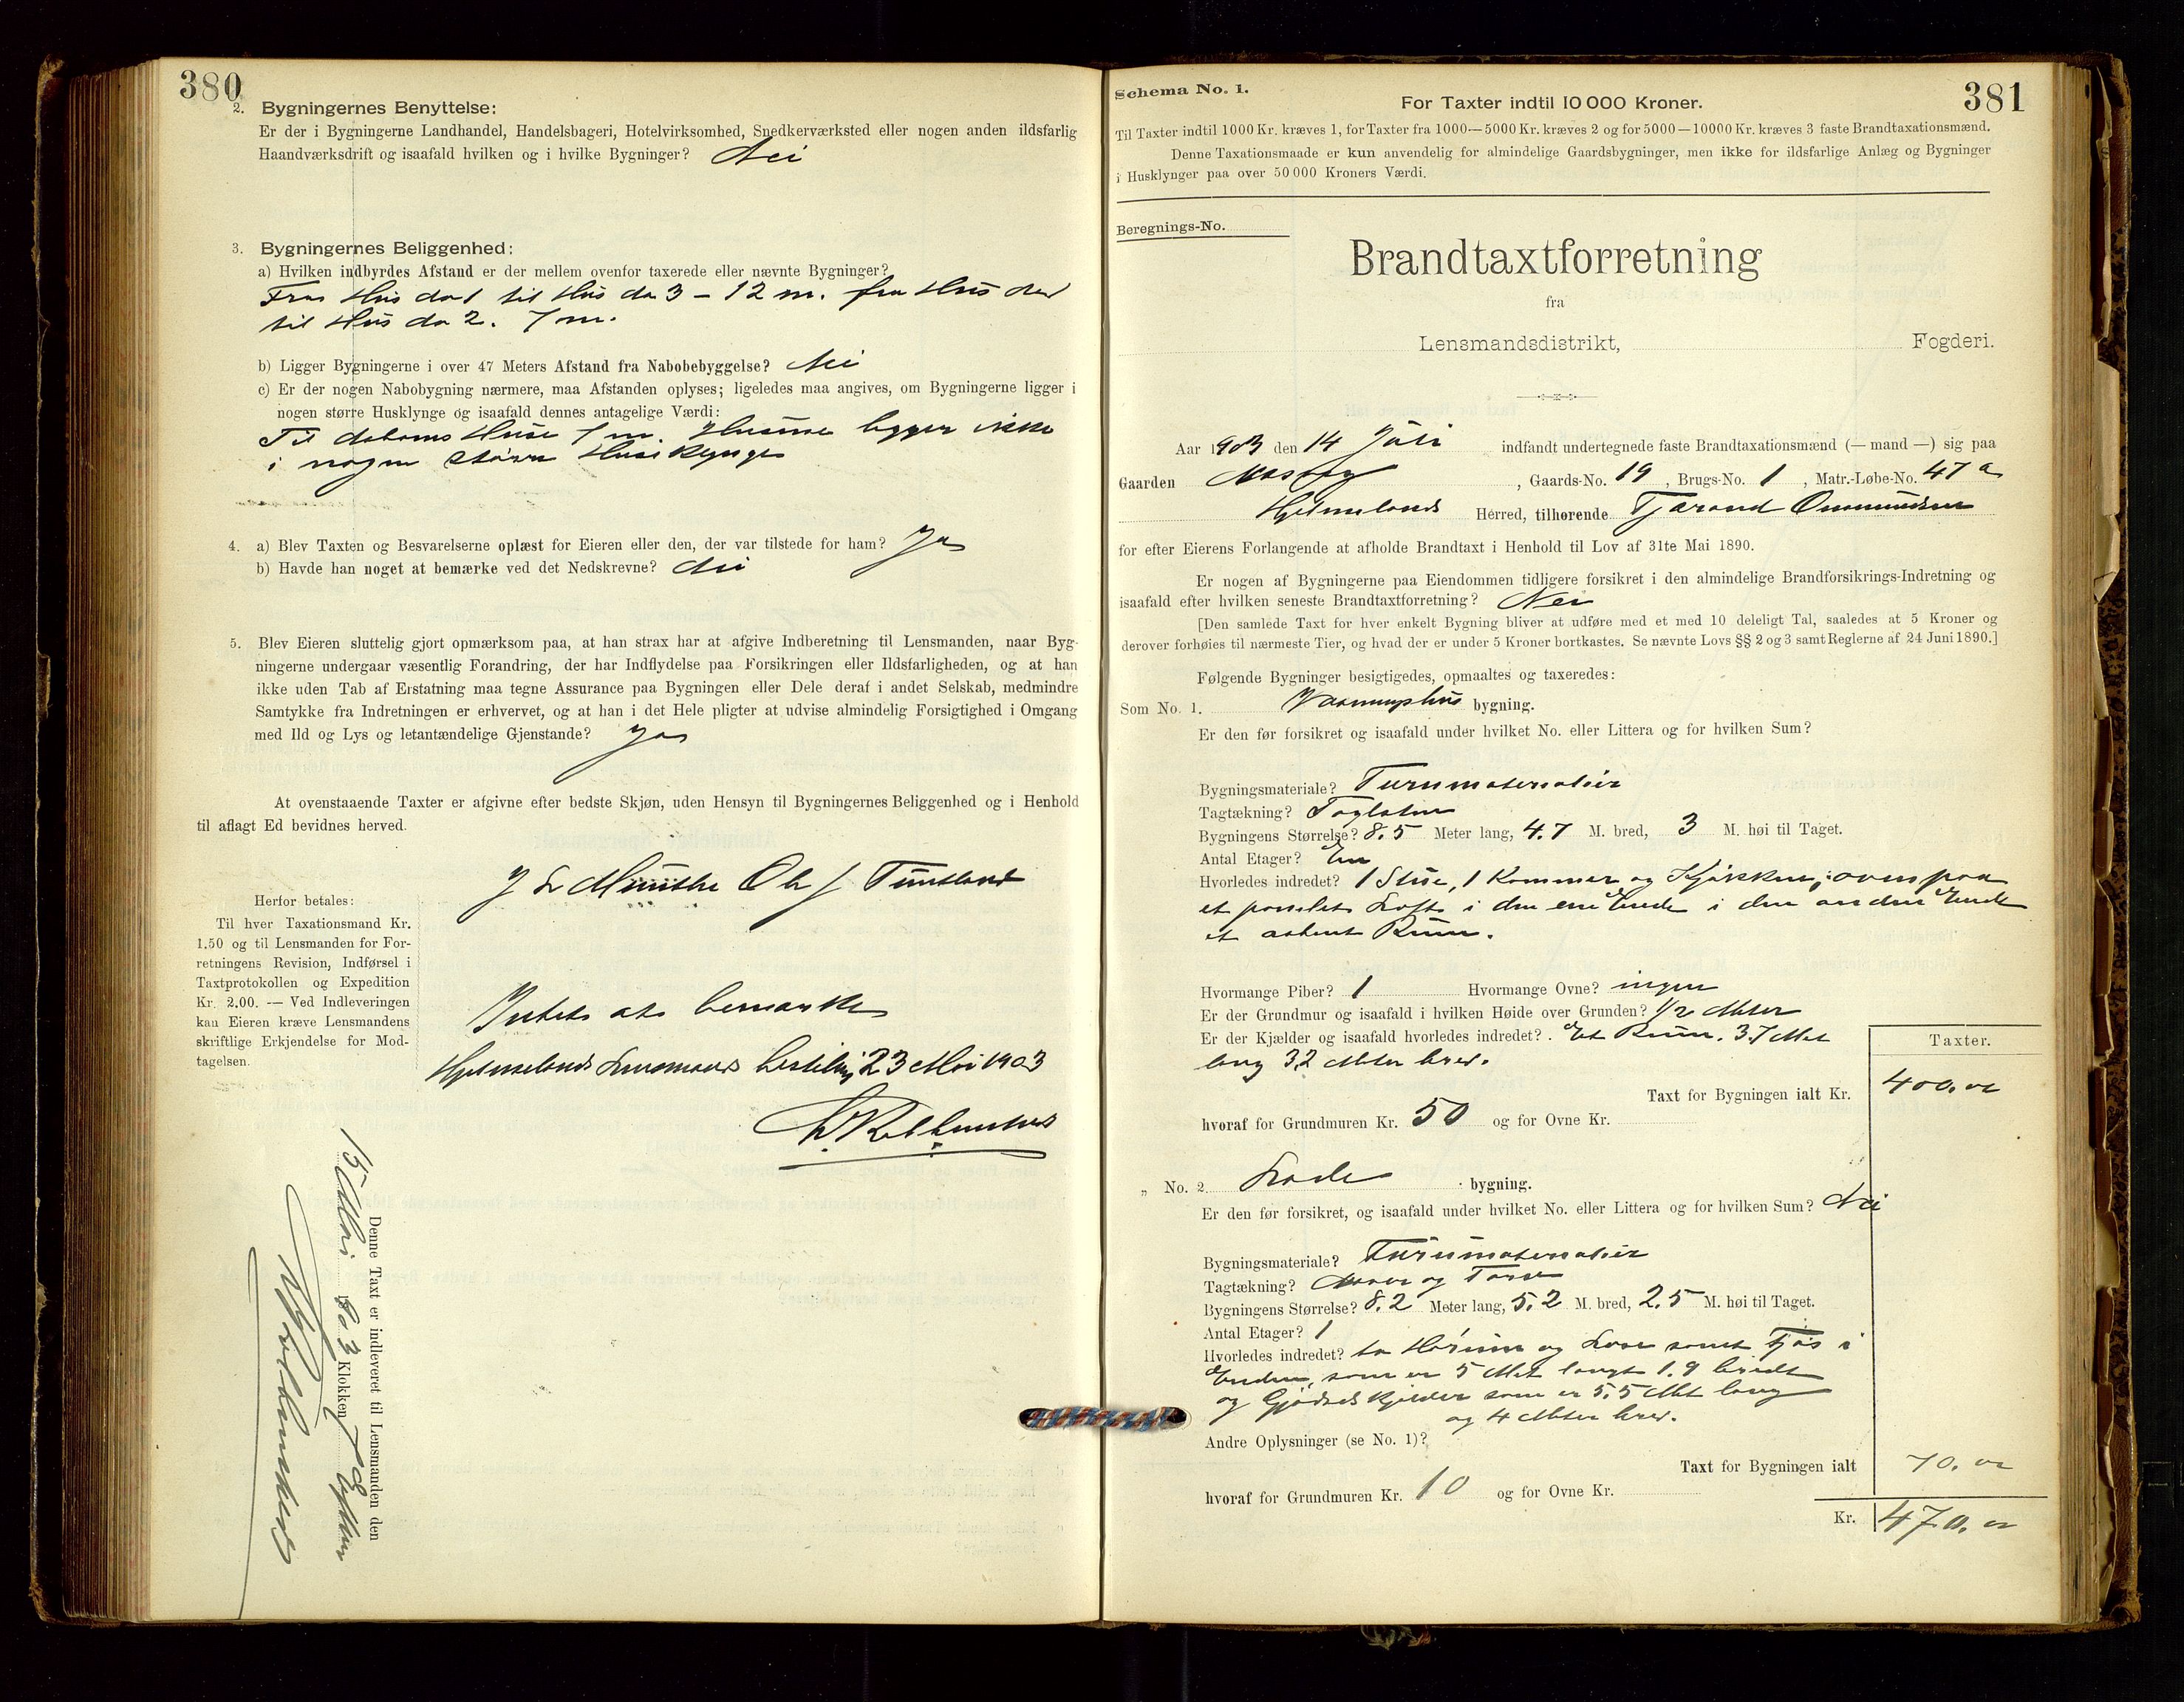 380
2. Bygningernes Benyttelse:
Er der i Bygningerne Landhandel, Handelsbageri, Hotelvirksomhed, Snedkerværksted eller nogen anden ildsfarlig
Haandværksdrift og isaafald hvilken og i hvilke Bygninger? Nei
3. Bygningernes Beliggenhed:
a) Hvilken indbyrdes Afstand er der mellem ovenfor taxerede eller nævnte Bygninger?
Fra Hus No 1 til Hus No 3 - 12 m. fra Hus No 1
til Hus No 2. 7 m.
b) Ligger Bygningerne i over 47 Meters Afstand fra Nabobebyggelse? Nei
c) Er der nogen Nabobygning nærmere, maa Afstanden oplyses; ligeledes maa angives, om Bygningerne ligger i
nogen større Husklynge og isaafald dennes antagelige Værdi:
Til Naboens Huse 7 m. Husene ligger ikke
i nogen større Huseklynge
4. a) Blev Taxten og Besvarelserne oplæst for Eieren eller den, der var tilstede for ham? Ja
b) Havde han noget at bemærke ved det Nedskrevne? Nei
5. Blev Eieren sluttelig gjort opmærksom paa, at han strax har at afgive Indberetning til Lensmanden, naar Byg-
ningerne undergaar væsentlig Forandring, der har Indflydelse paa Forsikringen eller Ildsfarligheden, og at han
ikke uden Tab af Erstatning maa tegne Assurance paa Bygningen eller Dele deraf i andet Selskab, medmindre
Samtykke fra Indretningen er erhvervet, og at han i det Hele pligter at udvise almindelig Forsigtighed i Omgang
med Ild og Lys og letantændelige Gjenstande? Ja
At ovenstaaende Taxter er afgivne efter bedste Skjøn, uden Hensyn til Bygningernes Beliggenhed og i Henhold
til aflagt Ed bevidnes herved.
Ole J Tuntland
Herfor betales:
Til hver Taxationsmand Kr.
1.50 og til Lensmanden for For-
retningens Revision, Indførsel i
Taxtprotokollen og Expedition
Kr. 2.00. — Ved Indleveringen
kan Eieren kræve Lensmandens
skriftlige Erkjendelse for Mod-
tagelsen.
Intet at bemærke
Hjelmelands Lensmands bestilling 23 Mai 1903
Denne Taxt er indleveret til Lensmanden den
15 Mai 1903 Klokken 7 Efterm
381
Schema No. 1.
For Taxter indtil 10 000 Kroner.
Til Taxter indtil 1000 Kr. kræves 1, for Taxter fra 1000—5000 Kr. kræves 2 og for 5000—10000 Kr. kræves 3 faste Brandtaxationsmænd.
Denne Taxationsmaade er kun anvendelig for almindelige Gaardsbygninger, men ikke for ildsfarlige Anlæg og Bygninger
i Husklynger paa over 50 000 Kroners Værdi.
Beregnings-No.
Brandtaxtforretning
fra
Lensmandsdistrikt, Fogderi.
Aar 1903 den 14 Juli indfandt undertegnede faste Brandtaxationsmænd (— mand —) sig paa
Gaarden , Gaards-No. 19, Brugs-No. 1, Matr.-Løbe-No. 47 a
Hjelmelands Herred, tilhørende Tjærand Ommundsen
for efter Eierens Forlangende at afholde Brandtaxt i Henhold til Lov af 31te Mai 1890.
Er nogen af Bygningerne paa Eiendommen tidligere forsikret i den almindelige Brandforsikrings-Indretning og
isaafald efter hvilken seneste Brandtaxtforretning? Nei
[Den samlede Taxt for hver enkelt Bygning bliver at udføre med et med 10 deleligt Tal, saaledes at 5 Kroner og
derover forhøies til nærmeste Tier, og hvad der er under 5 Kroner bortkastes. Se nævnte Lovs §§ 2 og 3 samt Reglerne af 24 Juni 1890.]
Følgende Bygninger besigtigedes, opmaaltes og taxeredes:
Som No. 1. Vaaningshus bygning.
Er den før forsikret og isaafald under hvilket No. eller Littera og for hvilken Sum?
Bygningsmateriale? Furumaterialier
Tagtækning? Taglsten
Bygningens Størrelse? 8.5 Meter lang, 4.7 M. bred, 3 M. høi til Taget.
Antal Etager? En
Hvorledes indredet? 1 Stue, 1 Kammer og Kjøkken; ovenpaa
et panelet Loft i den ene Ende i den anden Ende
et aabent Rum.
Hvormange Piber? 1 Hvormange Ovne? ingen
Er der Grundmur og isaafald i hvilken Høide over Grunden? 1/2 Meter
Er der Kjælder og isaafald hvorledes indredet? Et Rum. 3.7 Met
lang 3.2 Meter bred.
Taxter.
Taxt for Bygningen ialt Kr. 400.00
hvoraf for Grundmuren Kr. 50 og for Ovne Kr.
„ No. 2. Lade bygning.
Er den før forsikret, og isaafald under hvilket No. eller Littera og for hvilken Sum? Nei
Bygningsmateriale? Furumaterialier
Tagtækning? Næver og Torv
Bygningens Størrelse? 8.2 Meter lang, 5.2 M. bred, 2.5 M. høi til Taget.
Antal Etager? 1
Hvorledes indredet? to Hørum og Love samt Fjøs i
Enden, som er 5 Met langt 1.9 bredt
og Gjødselskjelder som er 5.5 Met lang
og 4 Meter bred.
Andre Oplysninger (se No. 1)?
Taxt for Bygningen ialt 70.00
hvoraf for Grundmuren Kr. 10 og for Ovne Kr.
Kr. 470.00